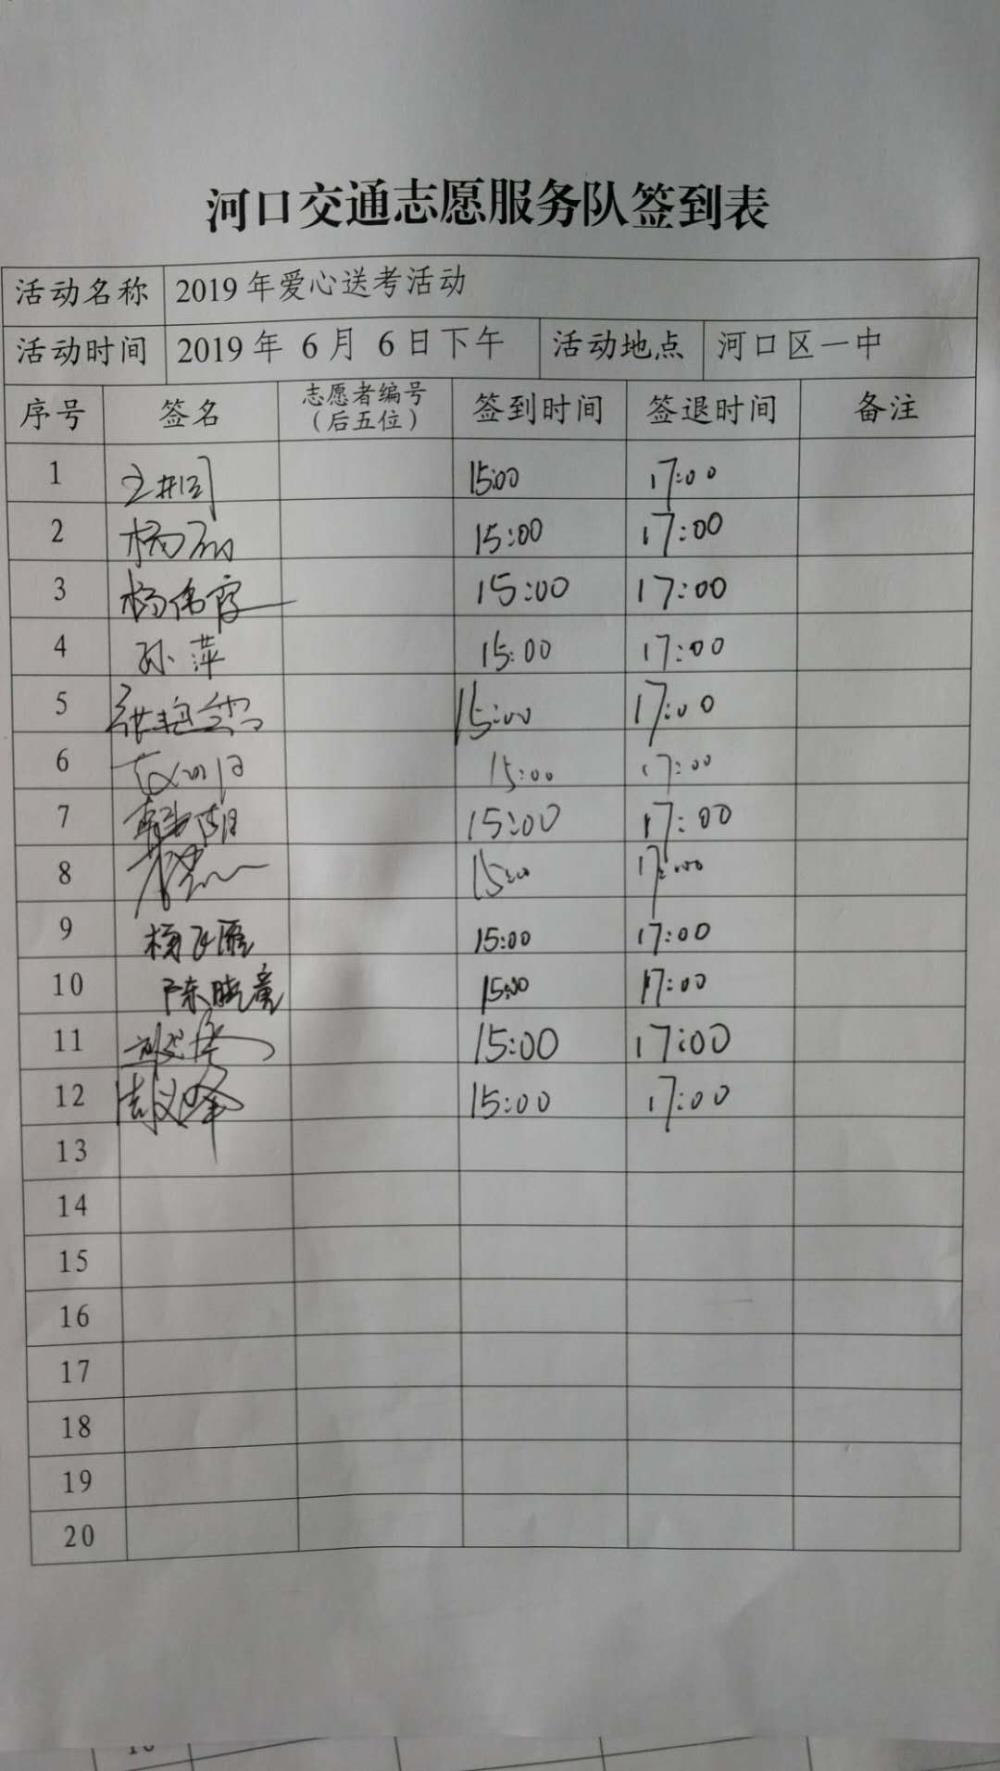 河口交通志愿服务队签到表
活动名称 2019年爱心送考活动
活动时间 2019年 6月 6日下午 活动地点 河口区一中
序号 签名 志愿者编号（后五位） 签到时间 签退时间 备注
1 15:00 17:00
2 杨 15:00 17:00
3 杨伟霞 15:00 17:00
4 孙萍 15:00 17:00
5 张艳雪 15:00 17:00
6 15:00 17:00
7 韩 15:00 17:00
8 15:00 17:00
9 杨飞雁 15:00 17:00
10 陈晓 15:00 17:00
11 15:00 17:00
12 15:00 17:00
13
14
15
16
17
18
19
20